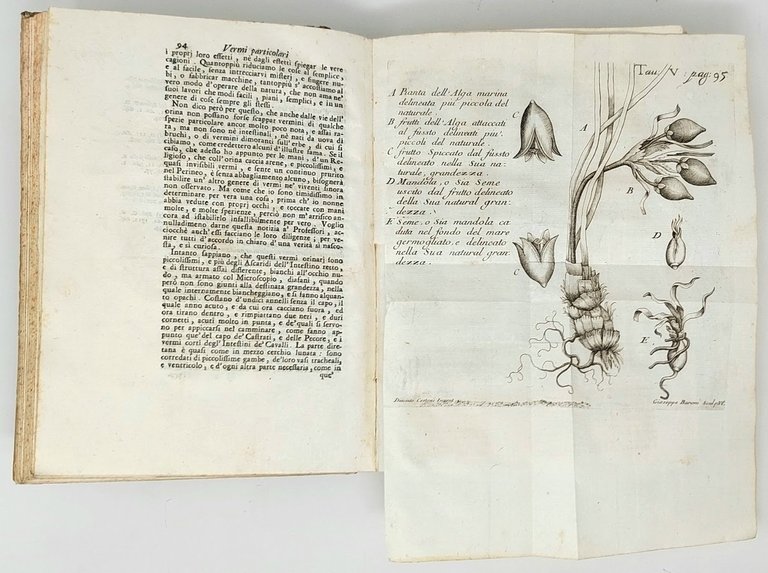 94 Vermi particolari
i proprj loro effetti, nè dagli effetti spiegar le vere
cagioni. Quantoppiù riduciamo le cose al semplice,
e al facile, senza intrecciarvi misterj, e fingere nu-
bi, o fabbricar macchine, tantoppiù s'accostiamo al
vero modo d'operare della natura, che non ama ne'
suoi lavori che modi facili, piani, semplici, e in un
genere di cose sempre gli stessi.
Non dico però per questo, che anche dalle vie dell'
orina non possano forse scappar vermini di qualche
spezie particolare ancor molto poco nota, e assai ra-
ra, ma non sono nè intestinali, nè nati da uova di
bruchi, o di vermini dimoranti sull'erbe, di cui si
cibiamo, come credettero alcuni d'illustre fama. Se il
caso, che adesso ho appunto per le mani, d'un Re-
ligioso, che coll'orina caccia arene, e piccolissimi, e
quasi invisibili vermi, e sente un continuo prurito
nel Perineo, è senza abbagliamento alcuno, bisognerà
stabilire un'altro genere di vermi ne' viventi finora
non osservato. Ma come che io sono timidissimo in
determinare per vera una cosa, prima ch' io nonne
abbia vedute con propri occhi, e toccate con mani
molte, e molte sperienze, perciò non m'arrisico an-
cora ad istabilirlo infallibilmente per vero. Voglio
nulladimeno darne questa notizia a' Professori, ac-
ciocchè anch'essi facciano le loro diligenze; per ve-
nire tutti d'accordo in chiaro d'una verità sì nasco-
sta, e sì curiosa.
Intanto sappiano, che questi vermi orinarj sono
piccolissimi, e più degli Ascaridi dell'Intestino retto,
e di struttura assai differente, bianchi all'occhio nu-
do, ma armato col Microscopio, diafani, quando
però non sono giunti alla destinata grandezza, nella
quale internamente biancheggiano, e si fanno alquan-
to opachi. Costano d'undici annelli senza il capo, il
quale anno acuto, e da cui ora cacciano fuora, ed
ora tirano dentro, e rimpiattano due neri, e duri
cornetti, acuti molto in punta, e de' quali si servo-
no per appiccarsi nel camminare, come fanno ap-
punto que' del capo de' Castrati, e delle Pecore, e i
vermi corti degl' Intestini de' Cavalli. La parte dire-
tana è quasi come in mezzo cerchio lunata: sono
corredati di piccolissime gambe, de' loro vasi tracheali,
e ventricolo, e d'ogni altra parte necessaria, come in
que'
Tau: V pag: 95
A Pianta dell'Alga marina
delineata piu' piccola del
naturale.
B frutti dell'Alga attaccati
al fusto delineati piu'
piccoli del naturale.
C frutto Spiccato dal fusto
delineato nella Sua na
turale, grandezza.
D Mandola, o Sia Seme
uscito dal frutto delineato
della Sua natural gran
dezza.
E Seme, o Sia mandola ca
duta nel fondo del mare
germogliato, e delineato
nella Sua natural gran
dezza.
C
A
B
D
C
E
Diacinto Cestoni
Giuseppe Baroni Sculpsit.